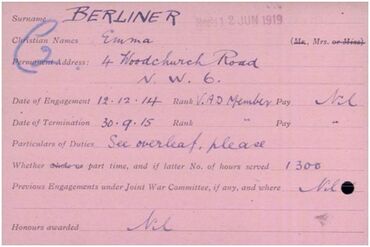 Surname BERLINER Rec'd 12 JUN 1919
C.
Christian Names Emma (Mr., Mrs. or Miss)
Permanent Address: 4 Woodchurch Road
N.W. 6.
Date of Engagement 12.12.14 Rank V.A.D Member Pay Nil
Date of Termination 30.9.15 Rank " Pay "
Particulars of Duties See overleaf, please
Whether whole or part time, and if latter No. of hours served 1300
Previous Engagements under Joint War Committee, if any, and where Nil
Honours awarded Nil